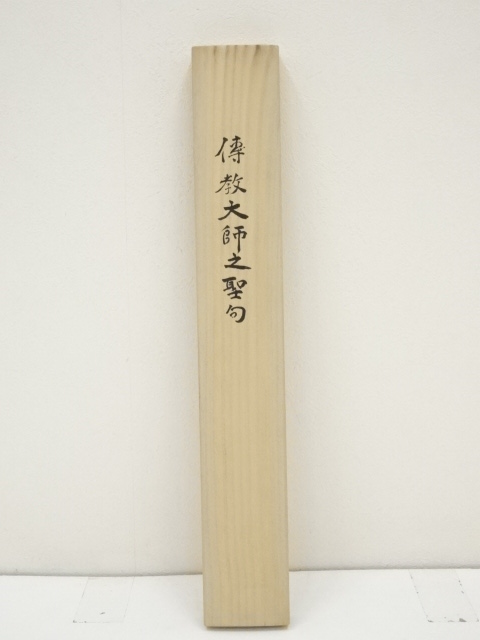 傳教大師之聖句